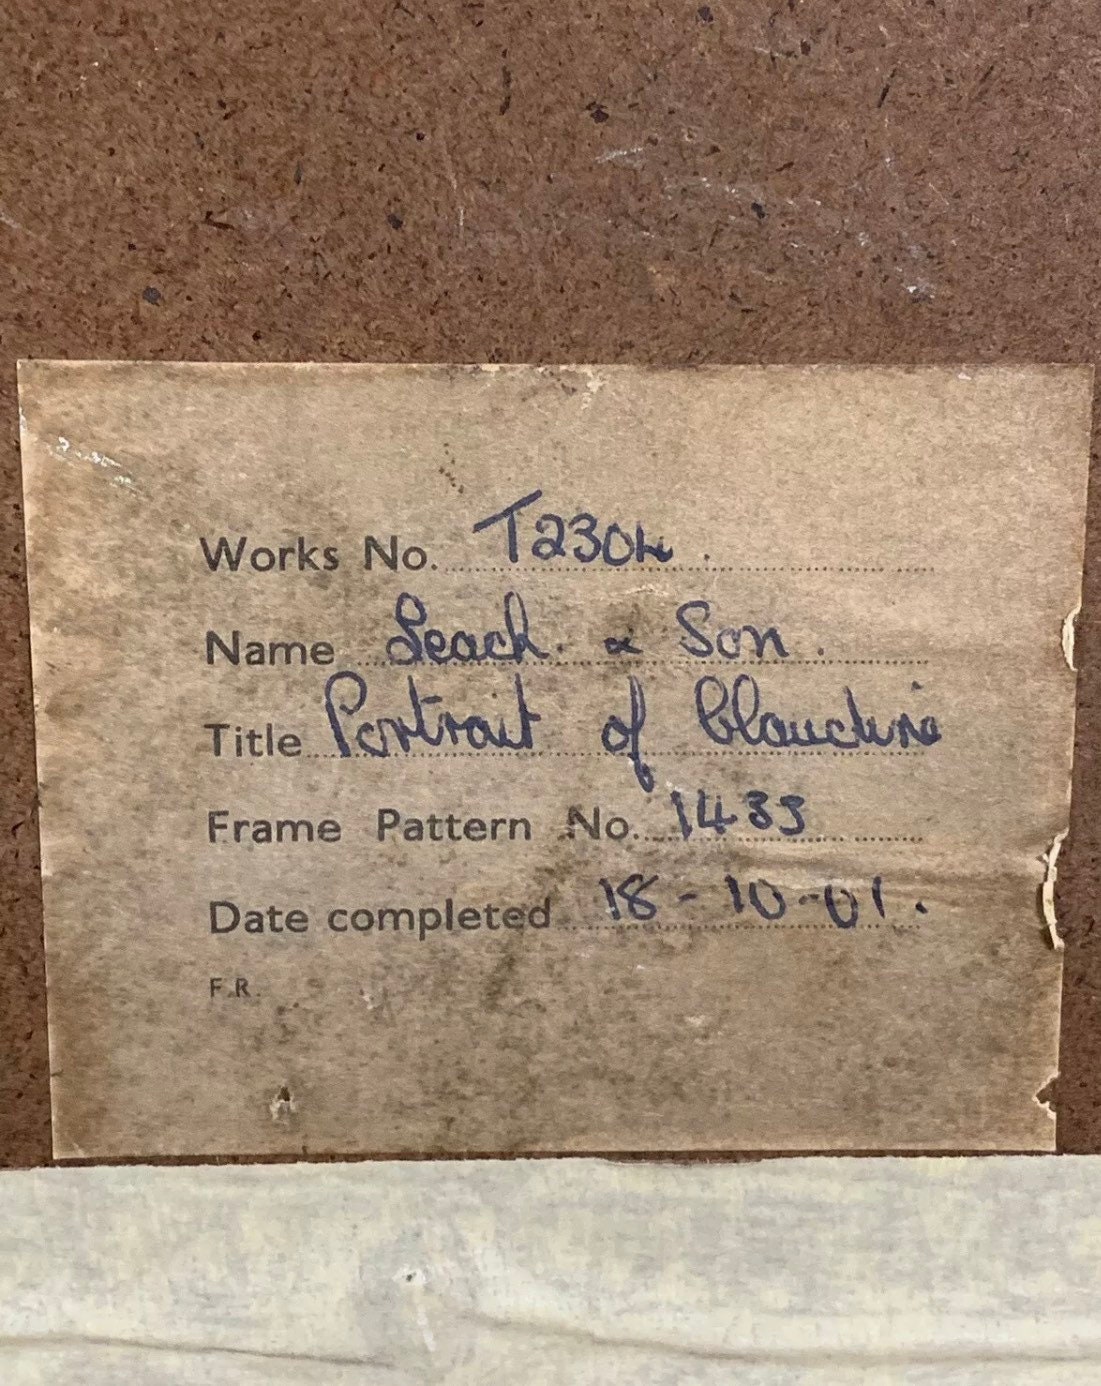 Works No. T2304.
Name Leach. & Son.
Title Portrait of
Frame Pattern No. 1433
Date completed 18-10-01.
F.R.